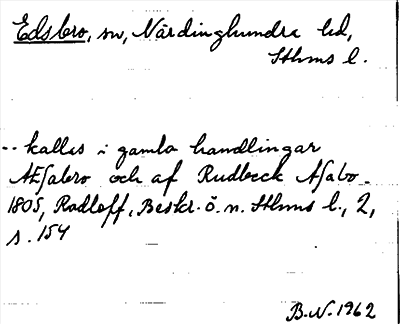 Edsbro, sn, Närdinghundra hd,
Sthms l.
-- kallas i gamla handlingar
AEsabro och af Rudbeck Asabo.
1805, Radloff, Beskr. ö. n. Sthms l., 2,
s. 154
B.N. 1962